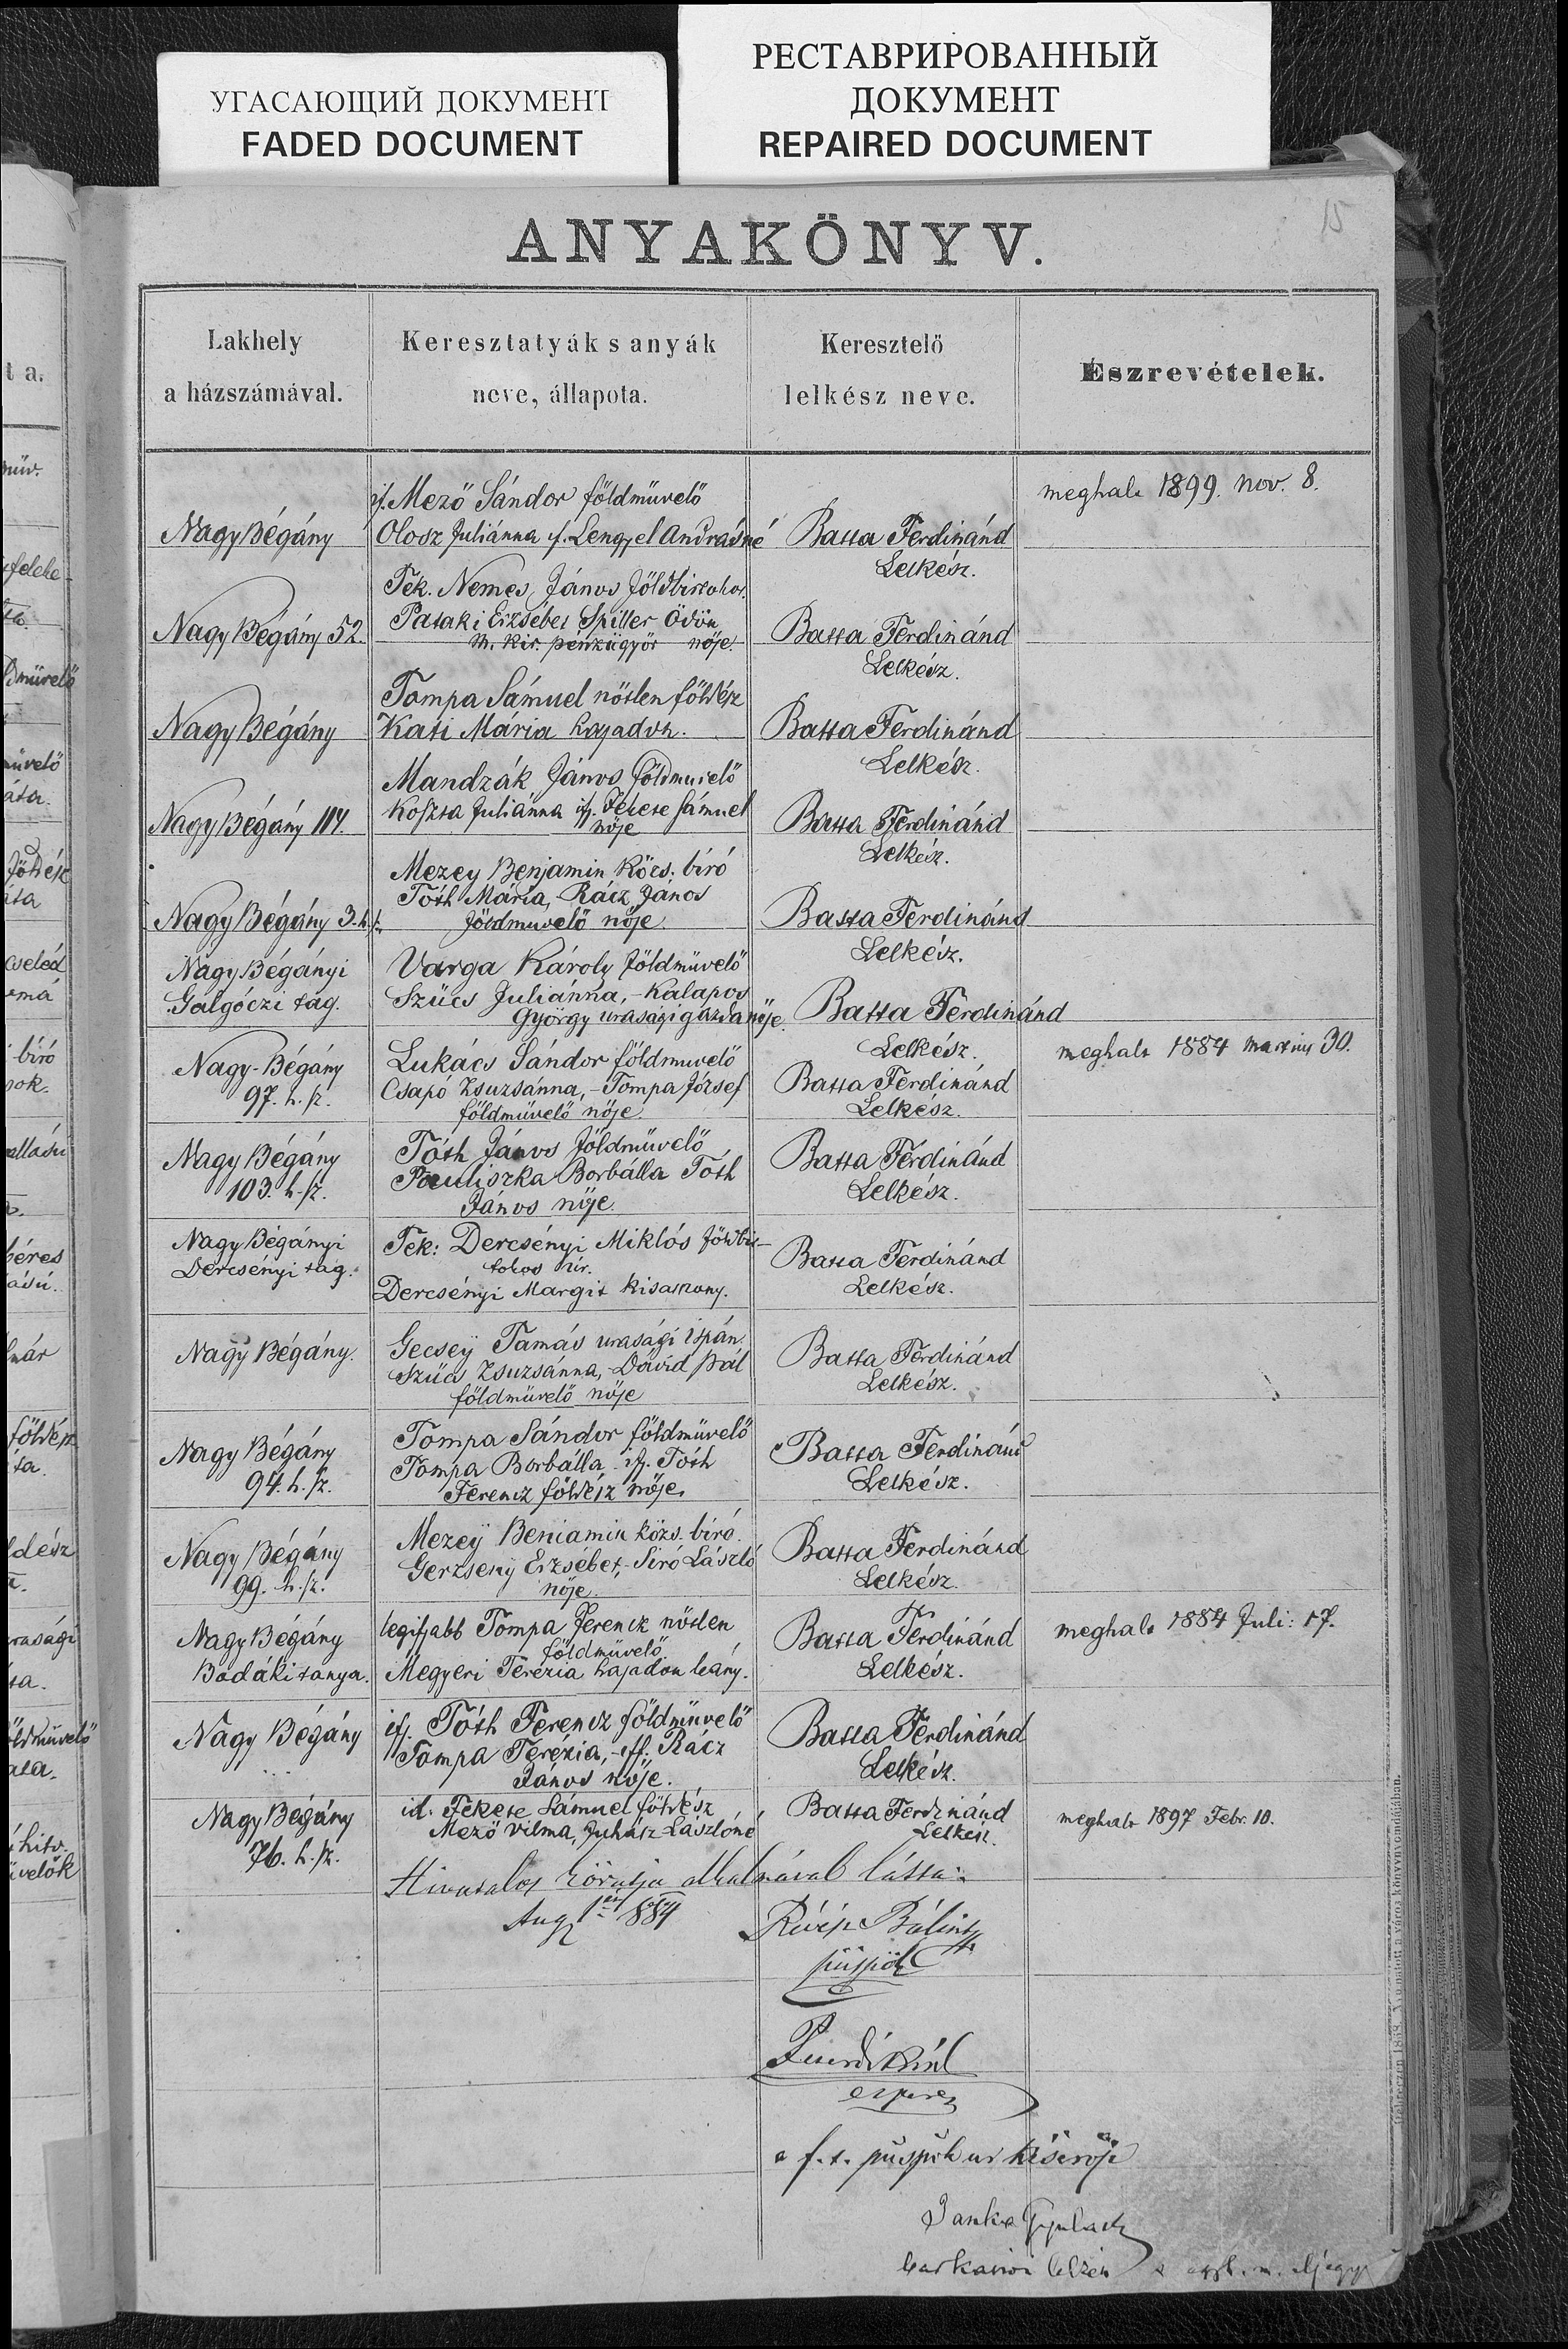 УГАСАЮЩИЙ ДОКУМЕНТ
FADED DOCUMENT
РЕСТАВРИРОВАННЫЙ
ДОКУМЕНТ
REPAIRED DOCUMENT
15
ANYAKÖNYV.
Lakhely
a házszámával.
Keresztatyák s anyák
neve, állapota.
Keresztelő
lelkész neve.
Észrevételek.
if. Mező Sándor földmüvelő
meghalt 1899. nov. 8.
Nagy Bégány
Olosz Juliánna if. Lengyel Andrásné
Batta Ferdinánd
Lelkész.
Tek. Nemes János földbirtokos.
Nagy Bégány 52.
Pataki Erzsébet Spiller Ödön
m. kir. pénzügyőr nője.
Batta Ferdinánd
Lelkész.
Tompa Sámuel nőtlen földész
Nagy Bégány
Kati Mária hajadon.
Batta Ferdinánd
Lelkész.
Mandzák János földmuvelő
Nagy Bégány 114.
Koszta Juliánna ifj. Fekete Sámuel
nője
Batta Ferdinánd
Lelkész.
Mezey Benjamin Közs. bíró
Nagy Bégány 3. h. sz.
Tóth Mária, Rácz János
földmuvelő nője.
Batta Ferdinánd
Lelkész.
Nagy Bégányi
Galgóczi tag.
Varga Károly földmüvelő
Szücs Juliánna, - Kalapos
György urasági gazda nője.
Batta Ferdinánd
Lelkész.
Nagy-Bégány
97. h. sz.
Lukács Sándor földmuvelő
Csapó Zsuzsánna, - Tompa József
földmüvelő nője.
Batta Ferdinánd
Lelkész.
meghalt 1884 martius 30.
Nagy Bégány
103. h. sz.
Tóth János földmüvelő
Pauliszka Borbálla Tóth
János nője.
Batta Ferdinánd
Lelkész.
Nagy Bégányi
Dercsényi tag.
Tek: Dercsényi Miklós földbir-
tokos úr.
Dercsényi Margit kisasszony.
Batta Ferdinánd
Lelkész.
Nagy Bégány.
Gecsey Tamás urasági ispán.
Szücs Zsuzsánna, - Dávid Pál
földmüvelő nője
Batta Ferdinánd
Lelkész.
Nagy Bégány
94. h. sz.
Tompa Sándor földmüvelő
Tompa Borbálla ifj. Tóth
Ferencz földész nője.
Batta Ferdinánd
Lelkész.
Nagy Bégány
99. h. sz.
Mezey Beniamin közs. bíró.
Gerzseny Erzsébet, - Siró László
nője.
Batta Ferdinánd
Lelkész.
Nagy Bégány
Badáki tanya.
legifjabb Tompa Ferencz nőtlen
földmüvelő
Megyeri Terézia hajadon leány.
Batta Ferdinánd
Lelkész.
meghalt 1884 Juli: 17.
Nagy Bégány
ifj. Tóth Ferencz földmüvelő
Tompa Terézia, - iff. Rácz
János nője.
Batta Ferdinánd
Lelkész.
Nagy Bégány
76. h. sz.
id. Fekete Sámuel földész
Mező Vilma, Juhász Lászlóné
Batta Ferdinánd
Lelkész.
meghalt 1897 Febr. 10.
Hivatalos körutja alkalmával látta:
Aug 1én 884
Révész Bálint
püspök
esperes
a f. t. püspök ur kisérője